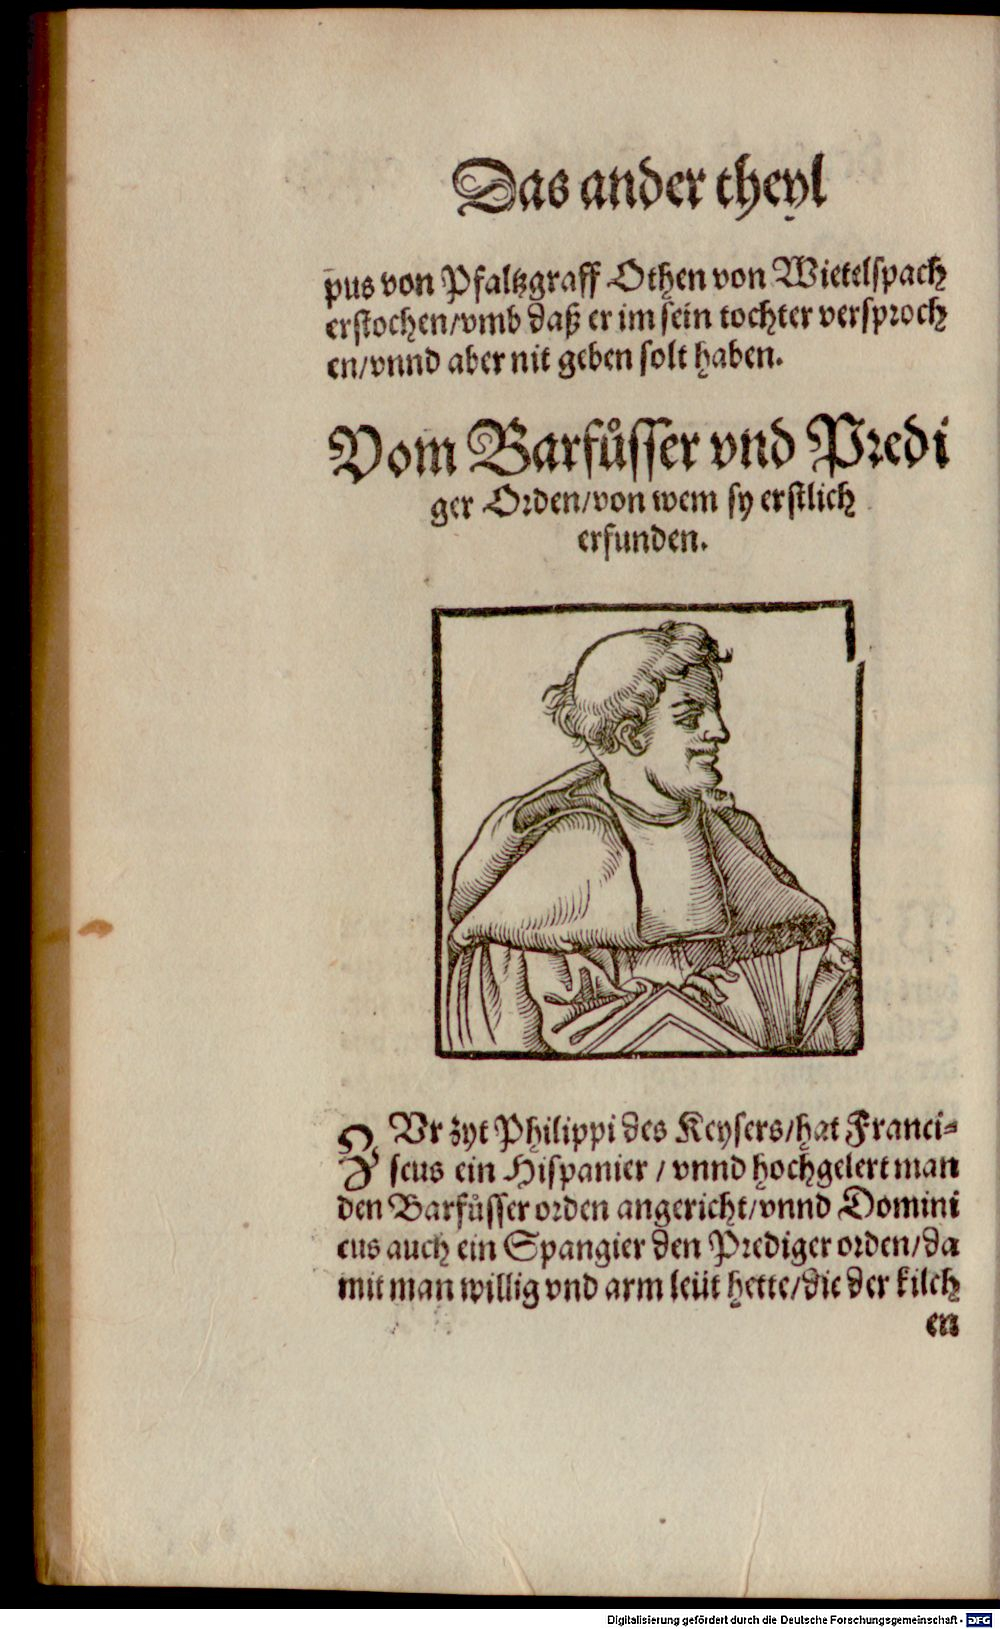 Das ander theyl
p̄us von Pfaltzgraff Othen von Wietelspach
erstochen/vmb daß er im sein tochter versproch
en/vnnd aber nit geben solt haben.
Vom Barfůsser vnd Predi
ger Orden/von wem sy erstlich
erfunden.
ZVr zyt Philippi des Keysers/hat Franci-
scus ein Hispanier / vnnd hochgelert man
den Barfůsser orden angericht/vnnd Domini
cus auch ein Spangier den Prediger orden/da
mit man willig vnd arm leüt hette/die der kilch
en
Digitalisierung gefördert durch die Deutsche Forschungsgemeinschaft - DFG